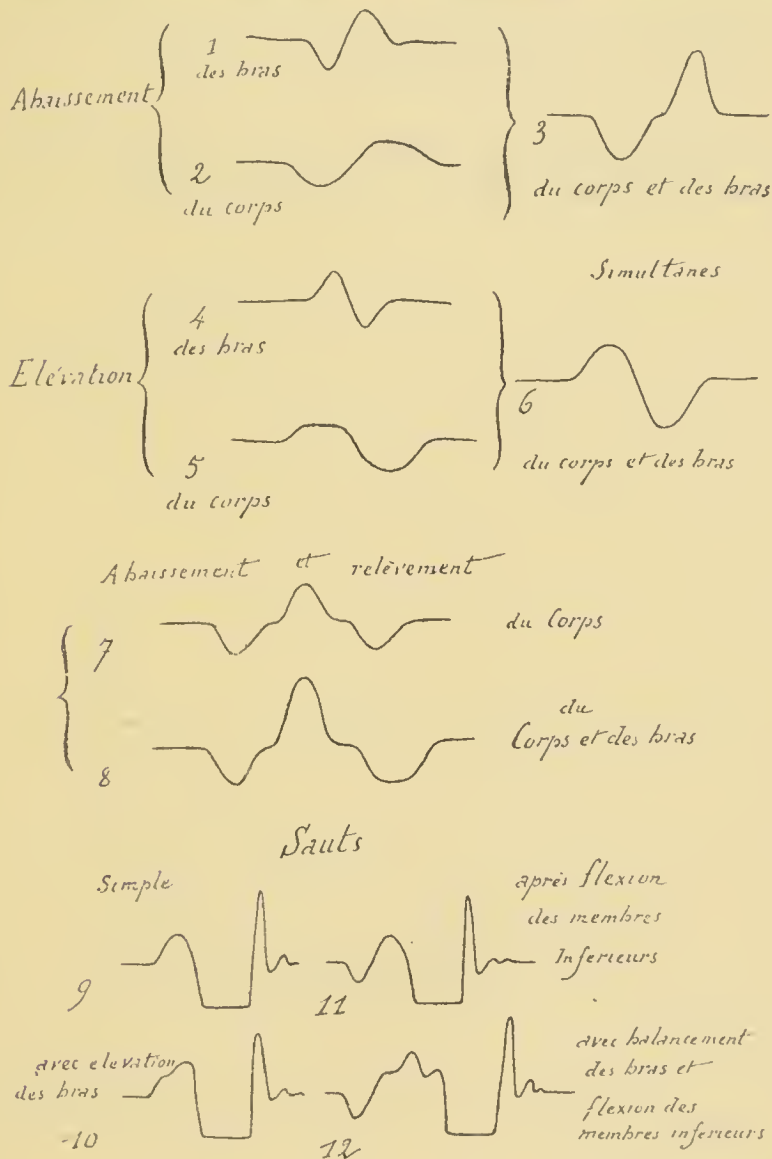 Abaissement
1
des bras
2
du corps
3
du corps et des bras
Simultanés
Elévation
4
des bras
5
du corps
6
du corps et des bras
Abaissement et relèvement
7
du Corps
8
du
Corps et des bras
Sauts
Simple
9
après flexion
des membres
Inferieurs
11
avec elevation
des bras
10
avec balancement
des bras et
flexion des
membres inferieurs
12